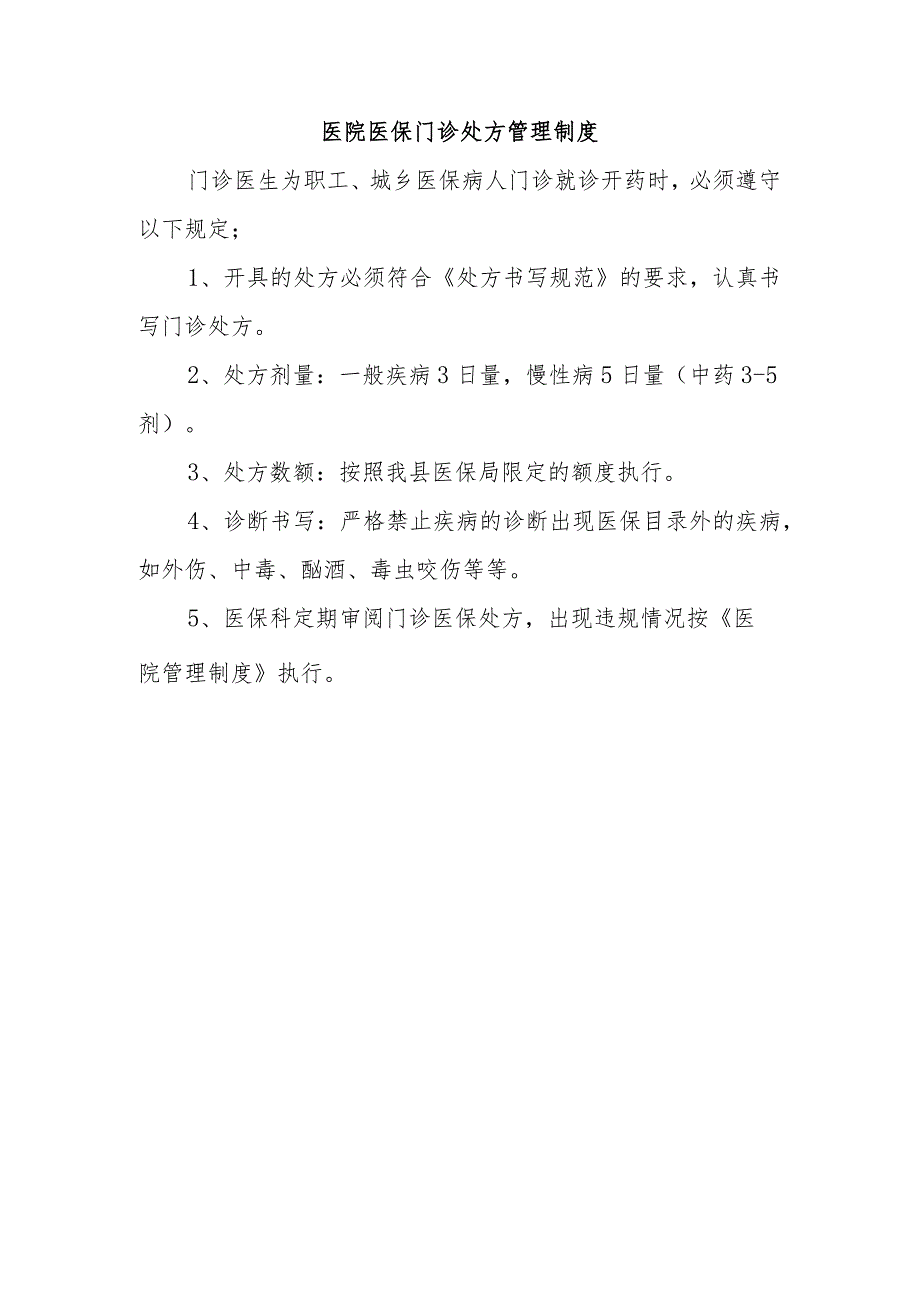 医院医保门诊处方管理制度
门诊医生为职工、城乡医保病人门诊就诊开药时，必须遵守
以下规定；
1、开具的处方必须符合《处方书写规范》的要求，认真书
写门诊处方。
2、处方剂量：一般疾病3日量，慢性病5日量（中药3-5
剂）。
3、处方数额：按照我县医保局限定的额度执行。
4、诊断书写：严格禁止疾病的诊断出现医保目录外的疾病，
如外伤、中毒、酗酒、毒虫咬伤等等。
5、医保科定期审阅门诊医保处方，出现违规情况按《医
院管理制度》执行。